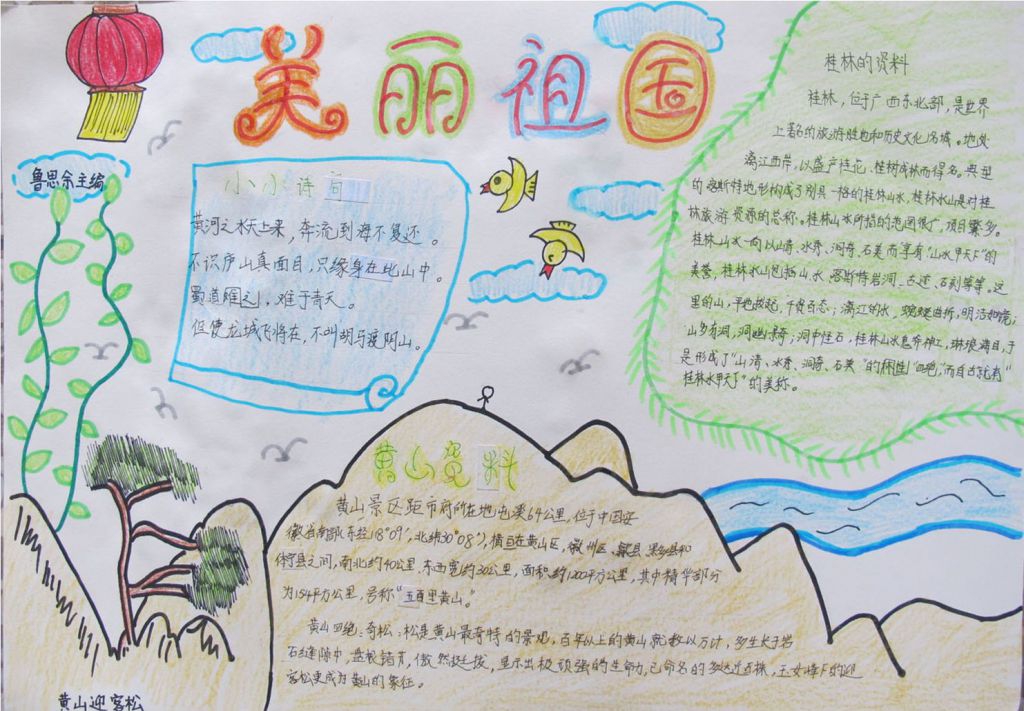 美丽祖国
鲁思余主编
小小诗句
黄河之水天上来，奔流到海不复还。
不识庐山真面目，只缘身在此山中。
蜀道难之，难于青天。
但使龙城飞将在，不叫胡马渡阴山。
桂林的资料
桂林，位于广西东北部，是世界
上著名的旅游胜地和历史文化名城。地处
漓江西岸，以盛产桂花、桂树成林而得名。典型
的喀斯特地形构成了别具一格的桂林山水，桂林山水是对桂
林旅游资源的总称。桂林山水所指的范围很广，项目繁多。
桂林山水一向以山清、水秀、洞奇、石美而享有"山水甲天下"的
美誉，桂林山水包括山水、喀斯特岩洞、古迹、石刻等等。这
里的山，平地拔起，千姿百态；漓江的水，蜿蜒曲折，明洁如镜；
山多有洞，洞幽景奇；洞中怪石，神工，琳琅满目，于
是形成了"山清、水秀、洞奇、石美"的四绝，而自古就有"
桂林山水甲天下"的美称。
黄山资料
黄山景区距市府所在地屯溪64公里，位于中国安
徽省南部(东经18°09′，北纬30°08′)，横亘在黄山区、徽州区、歙县、县和
休宁县之间，南北约40公里、东西宽约30公里，面积约1200平方公里，其中精华部分
为154平方公里，号称"五百里黄山。"
黄山四绝：奇松：松是黄山最奇特的景观，百年以上的黄山就数以万计，多生长于岩
石缝隙中，盘根错节，傲然挺拔，显示出极顽强的生命力，已命名的多达近百株，玉女峰下的迎
客松更成为黄山的象征。
黄山迎客松